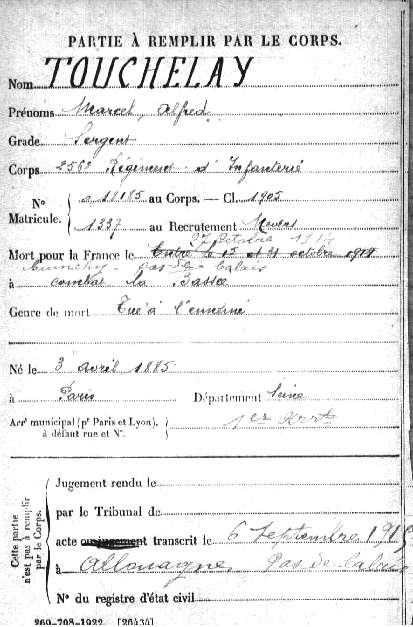 PARTIE À REMPLIR PAR LE CORPS.
Nom TOUCHELAY
Prénoms Marcel, Alfred
Grade Sergent
Corps 256e Régiment d'Infanterie
N° Matricule. { a 11185 au Corps. — Cl. 1905
1337 au Recrutement Nevers
27 octobre 1914
Mort pour la France le Entre le 13 et 31 octobre 1914
Pas de Calais
à combat La Bassée
Genre de mort Tué à l'ennemi
Né le 3 avril 1885
à Paris Département Seine
Arrt municipal (pr Paris et Lyon), à défaut rue et N°. { 1er Arrt
Cette partie n'est pas à remplir par le Corps.
Jugement rendu le
par le Tribunal de
acte ou jugement transcrit le 6 Septembre 1919
à Allouagne, Pas de Calais
N° du registre d'état civil
269-708-1922. [26434]